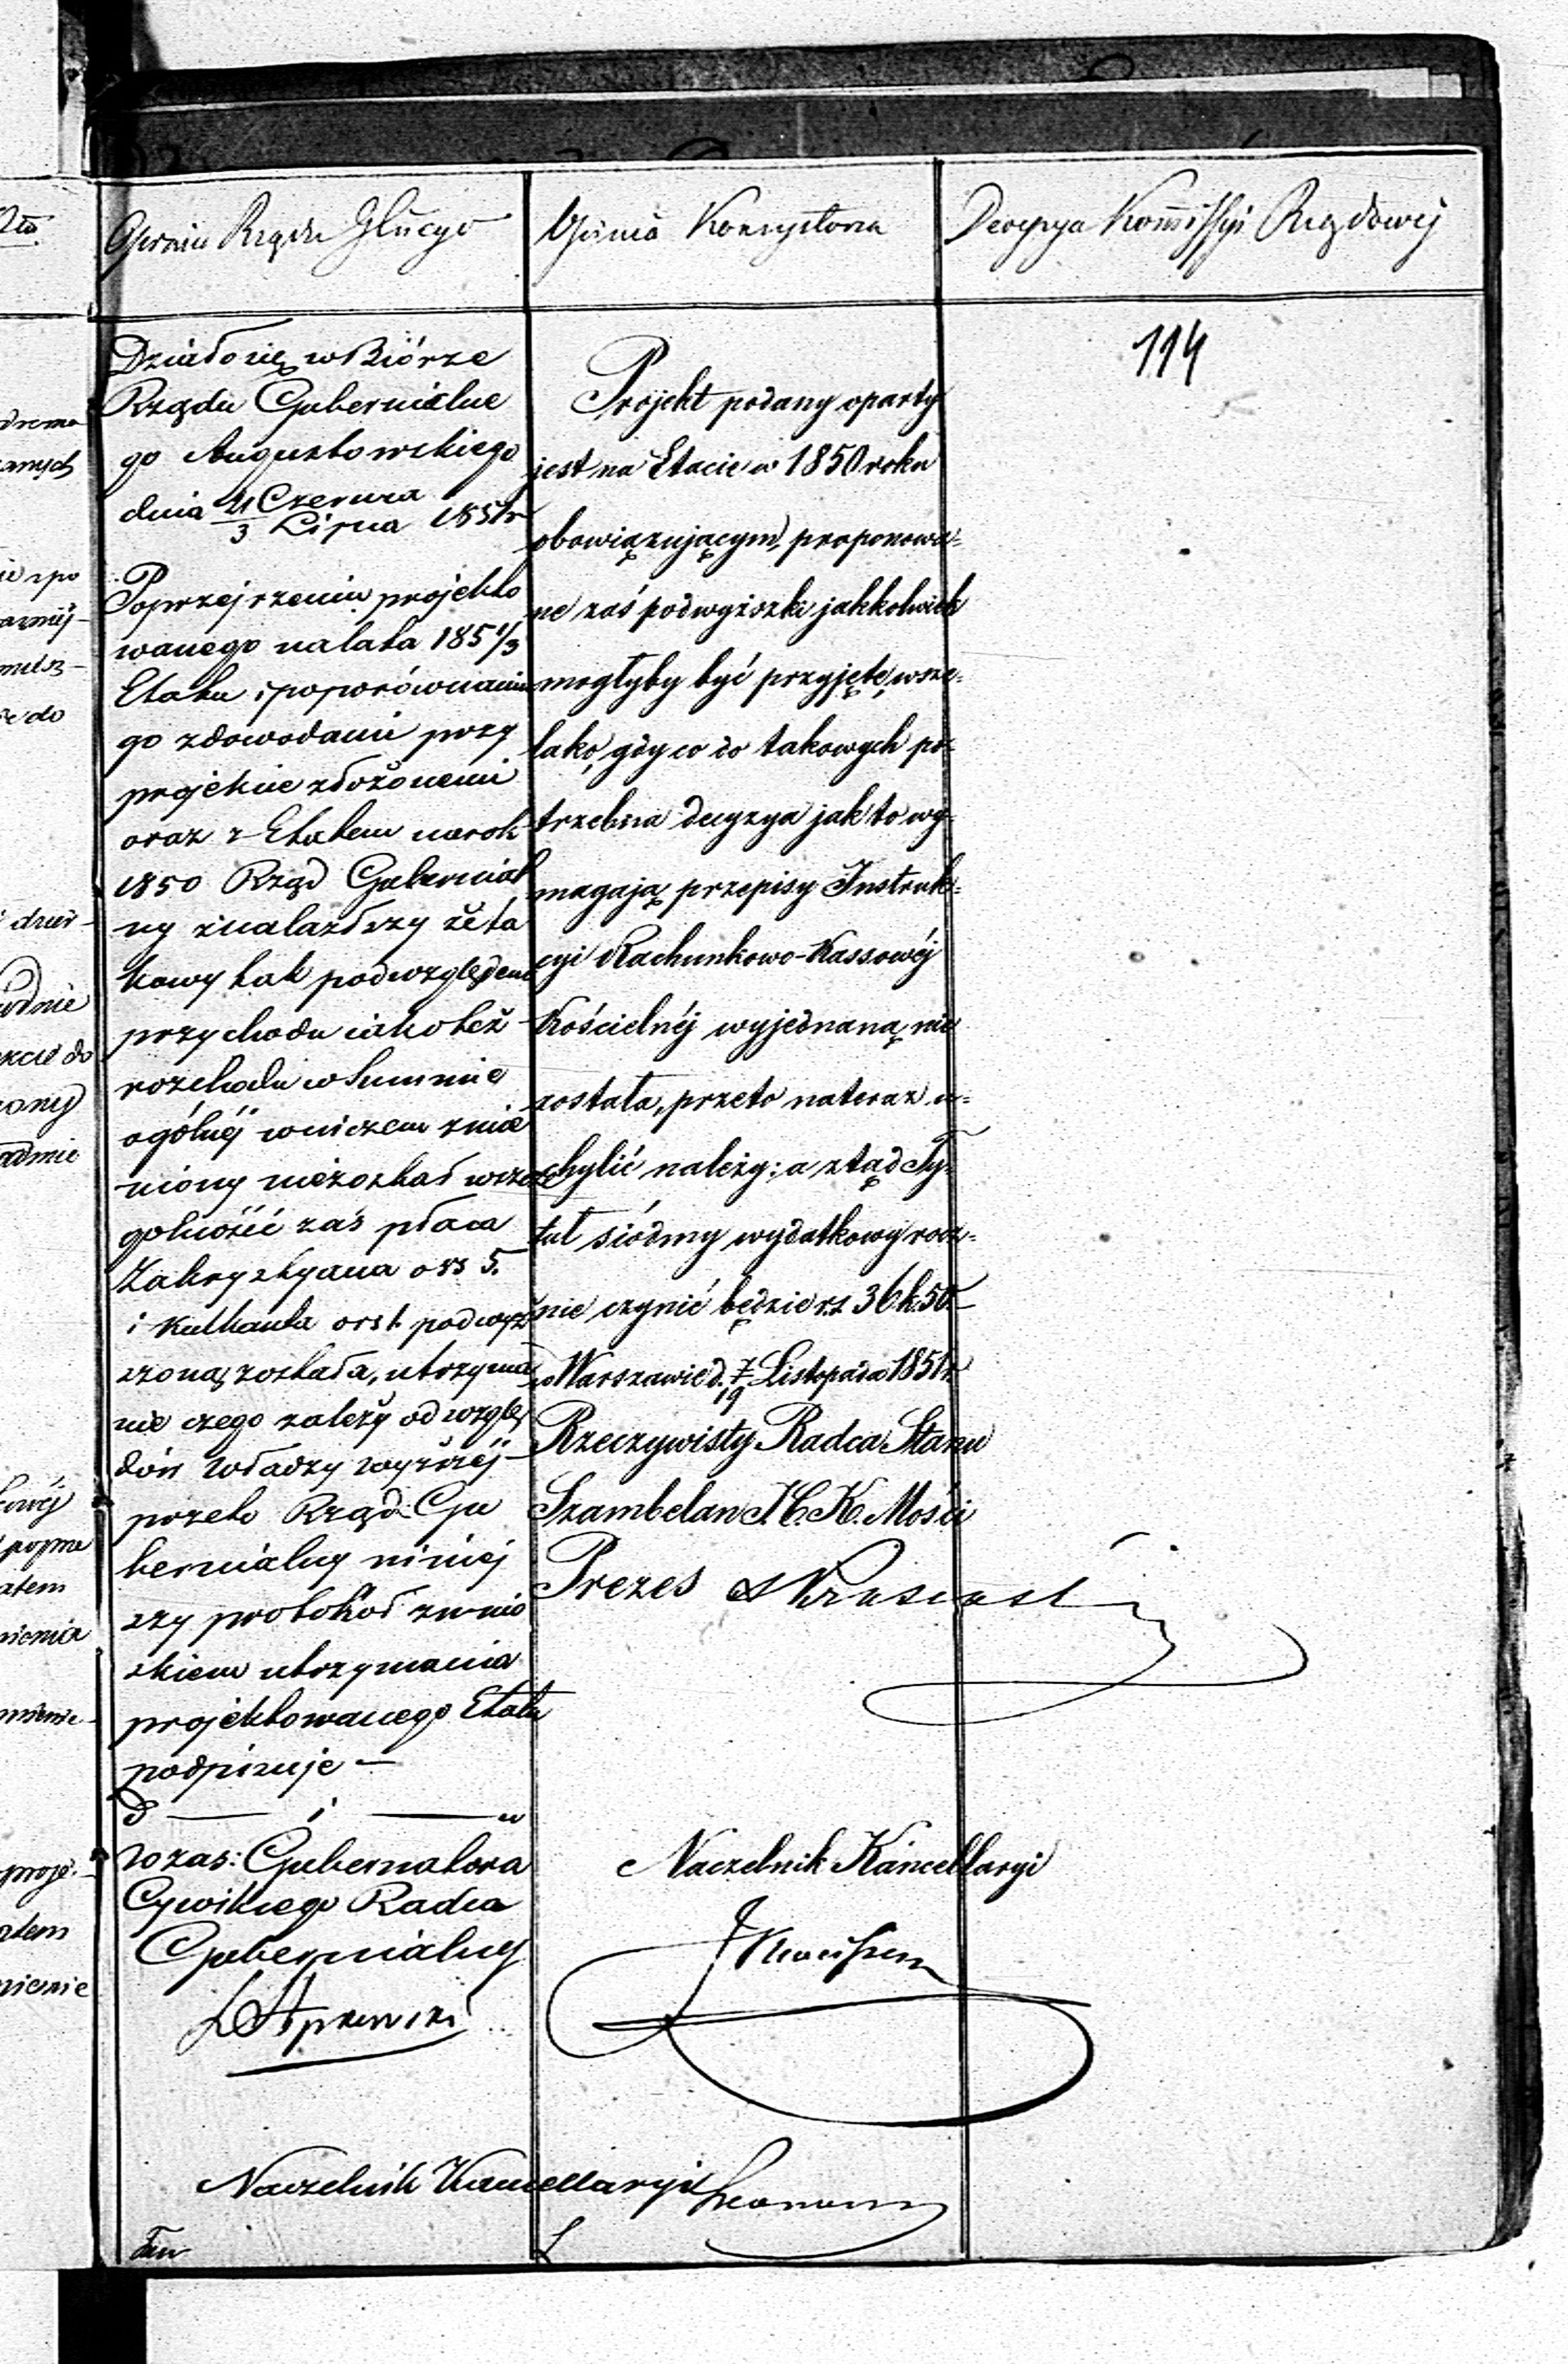 Opinia Rządu Gbńego
Opinia Konsystorza
Decyzya Kommissyi Rządowej
114
Działo się w Biórze
Rządu Gubernialne
go Augustowskiego
dnia 21 Czerwca / 3 Lipca 1851 r
Po przejrzeniu projekto
wanego na lata 1851/3
Etatu i po porównaniu
go z dowodami przy
projekcie złożonemi
oraz z Etatem na rok
1850 Rząd Gubernial
ny znalazłszy że ta
kowy tak pod względem
przychodu jako też
rozchodu w Summie
ogólnej w niczem zmie
niony nie został w szcze
gólności zaś płaca
Zakrystyana o rs 5.
i Kalkanta o rs 1. podwyż
szoną została, utrzyma
nie czego zależy od wzglę
dów władzy wyższej –
przeto Rząd Gu
bernialny niniej
szy protokół z wnio
skiem utrzymania
projektowanego Etatu
podpisuje –
d — i — u
w zas: Gubernatora
Cywilnego Radca
Gubernialny
Naczelnik Kancellaryi
Projekt podany oparty
jest na Etacie w 1850 roku
obowiązującym, proponowa-
ne zaś podwyżski jakkolwiek
mogłyby być przyjęte, wsze-
lako, gdy co do takowych po-
trzebna decyzya jak to wy-
magają przepisy Instruk-
cyi Rachunkowo-Kassowéj
Kościelnéj wyjednaną nie
została, przeto na teraz u-
chylić należy: a ztąd Ty-
tuł siódmy wydatkowy rocz-
nie czynić będzie rs 36 k. 50 –
w Warszawie d. 7/19 Listopada 1851 r
Rzeczywisty Radca Stanu
Szambelan J. C. K. Mości
Prezes
Naczelnik Kancellaryi